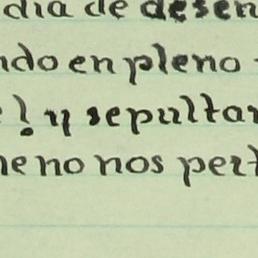 dia de desen
ndo en pleno
! y sepultar
ne no nos pert